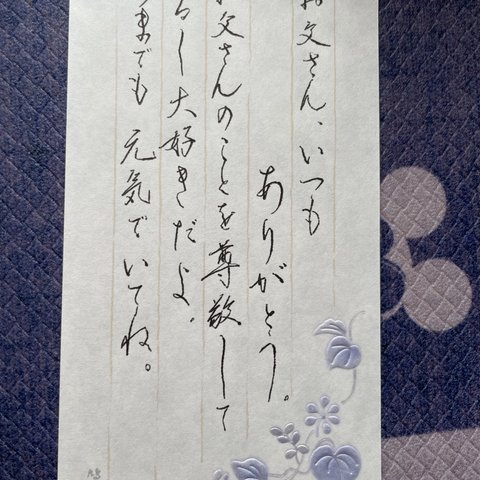 お父さん、いつも
ありがとう。
お父さんのことを尊敬して
るし大好きだよ。
までも元気でいてね。